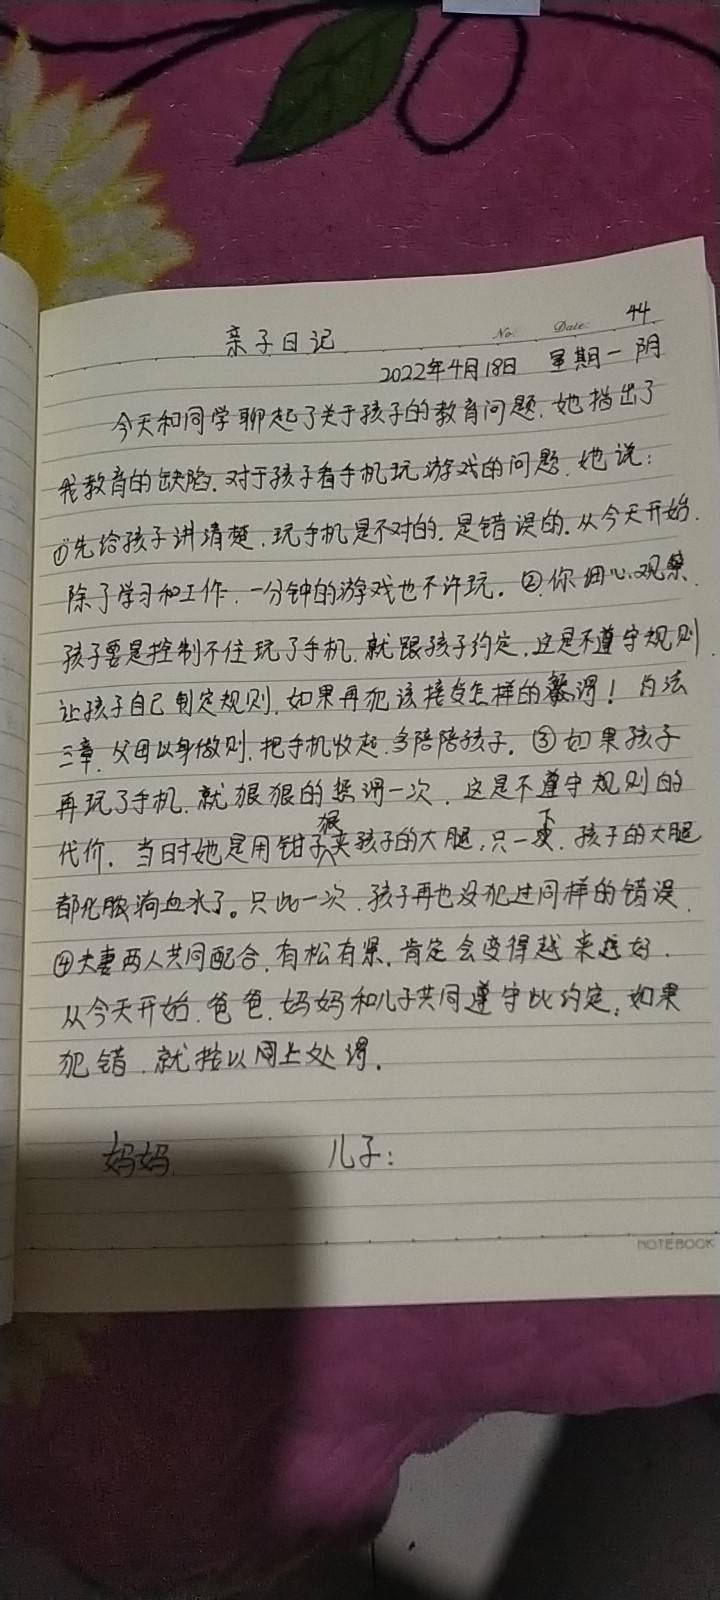 亲子日记
No:
Date:
44
2022年4月18日 星期一 阴
今天和同学聊起了关于孩子的教育问题,她指出了
我教育的缺陷.对于孩子看手机玩游戏的问题.她说:
①先给孩子讲清楚,玩手机是不对的.是错误的.从今天开始.
除了学习和工作.一分钟的游戏也不许玩。②你细心观察.
孩子要是控制不住玩了手机.就跟孩子约定.这是不遵守规则.
让孩子自己制定规则.如果再犯该接受怎样的惩罚!约法
三章.父母以身做则.把手机收起.多陪陪孩子。③如果孩子
再玩了手机.就狠狠的惩罚一次.这是不遵守规则的
代价.当时她是用钳子狠夹孩子的大腿,只一下.孩子的大腿
都化脓淌血水了。只此一次.孩子再也没犯过同样的错误.
④夫妻两人共同配合.有松有紧.肯定会变得越来越好.
从今天开始.爸爸.妈妈和儿子共同遵守此约定。如果
犯错.就按以同上处罚.
妈妈 儿子:
NOTEBOOK